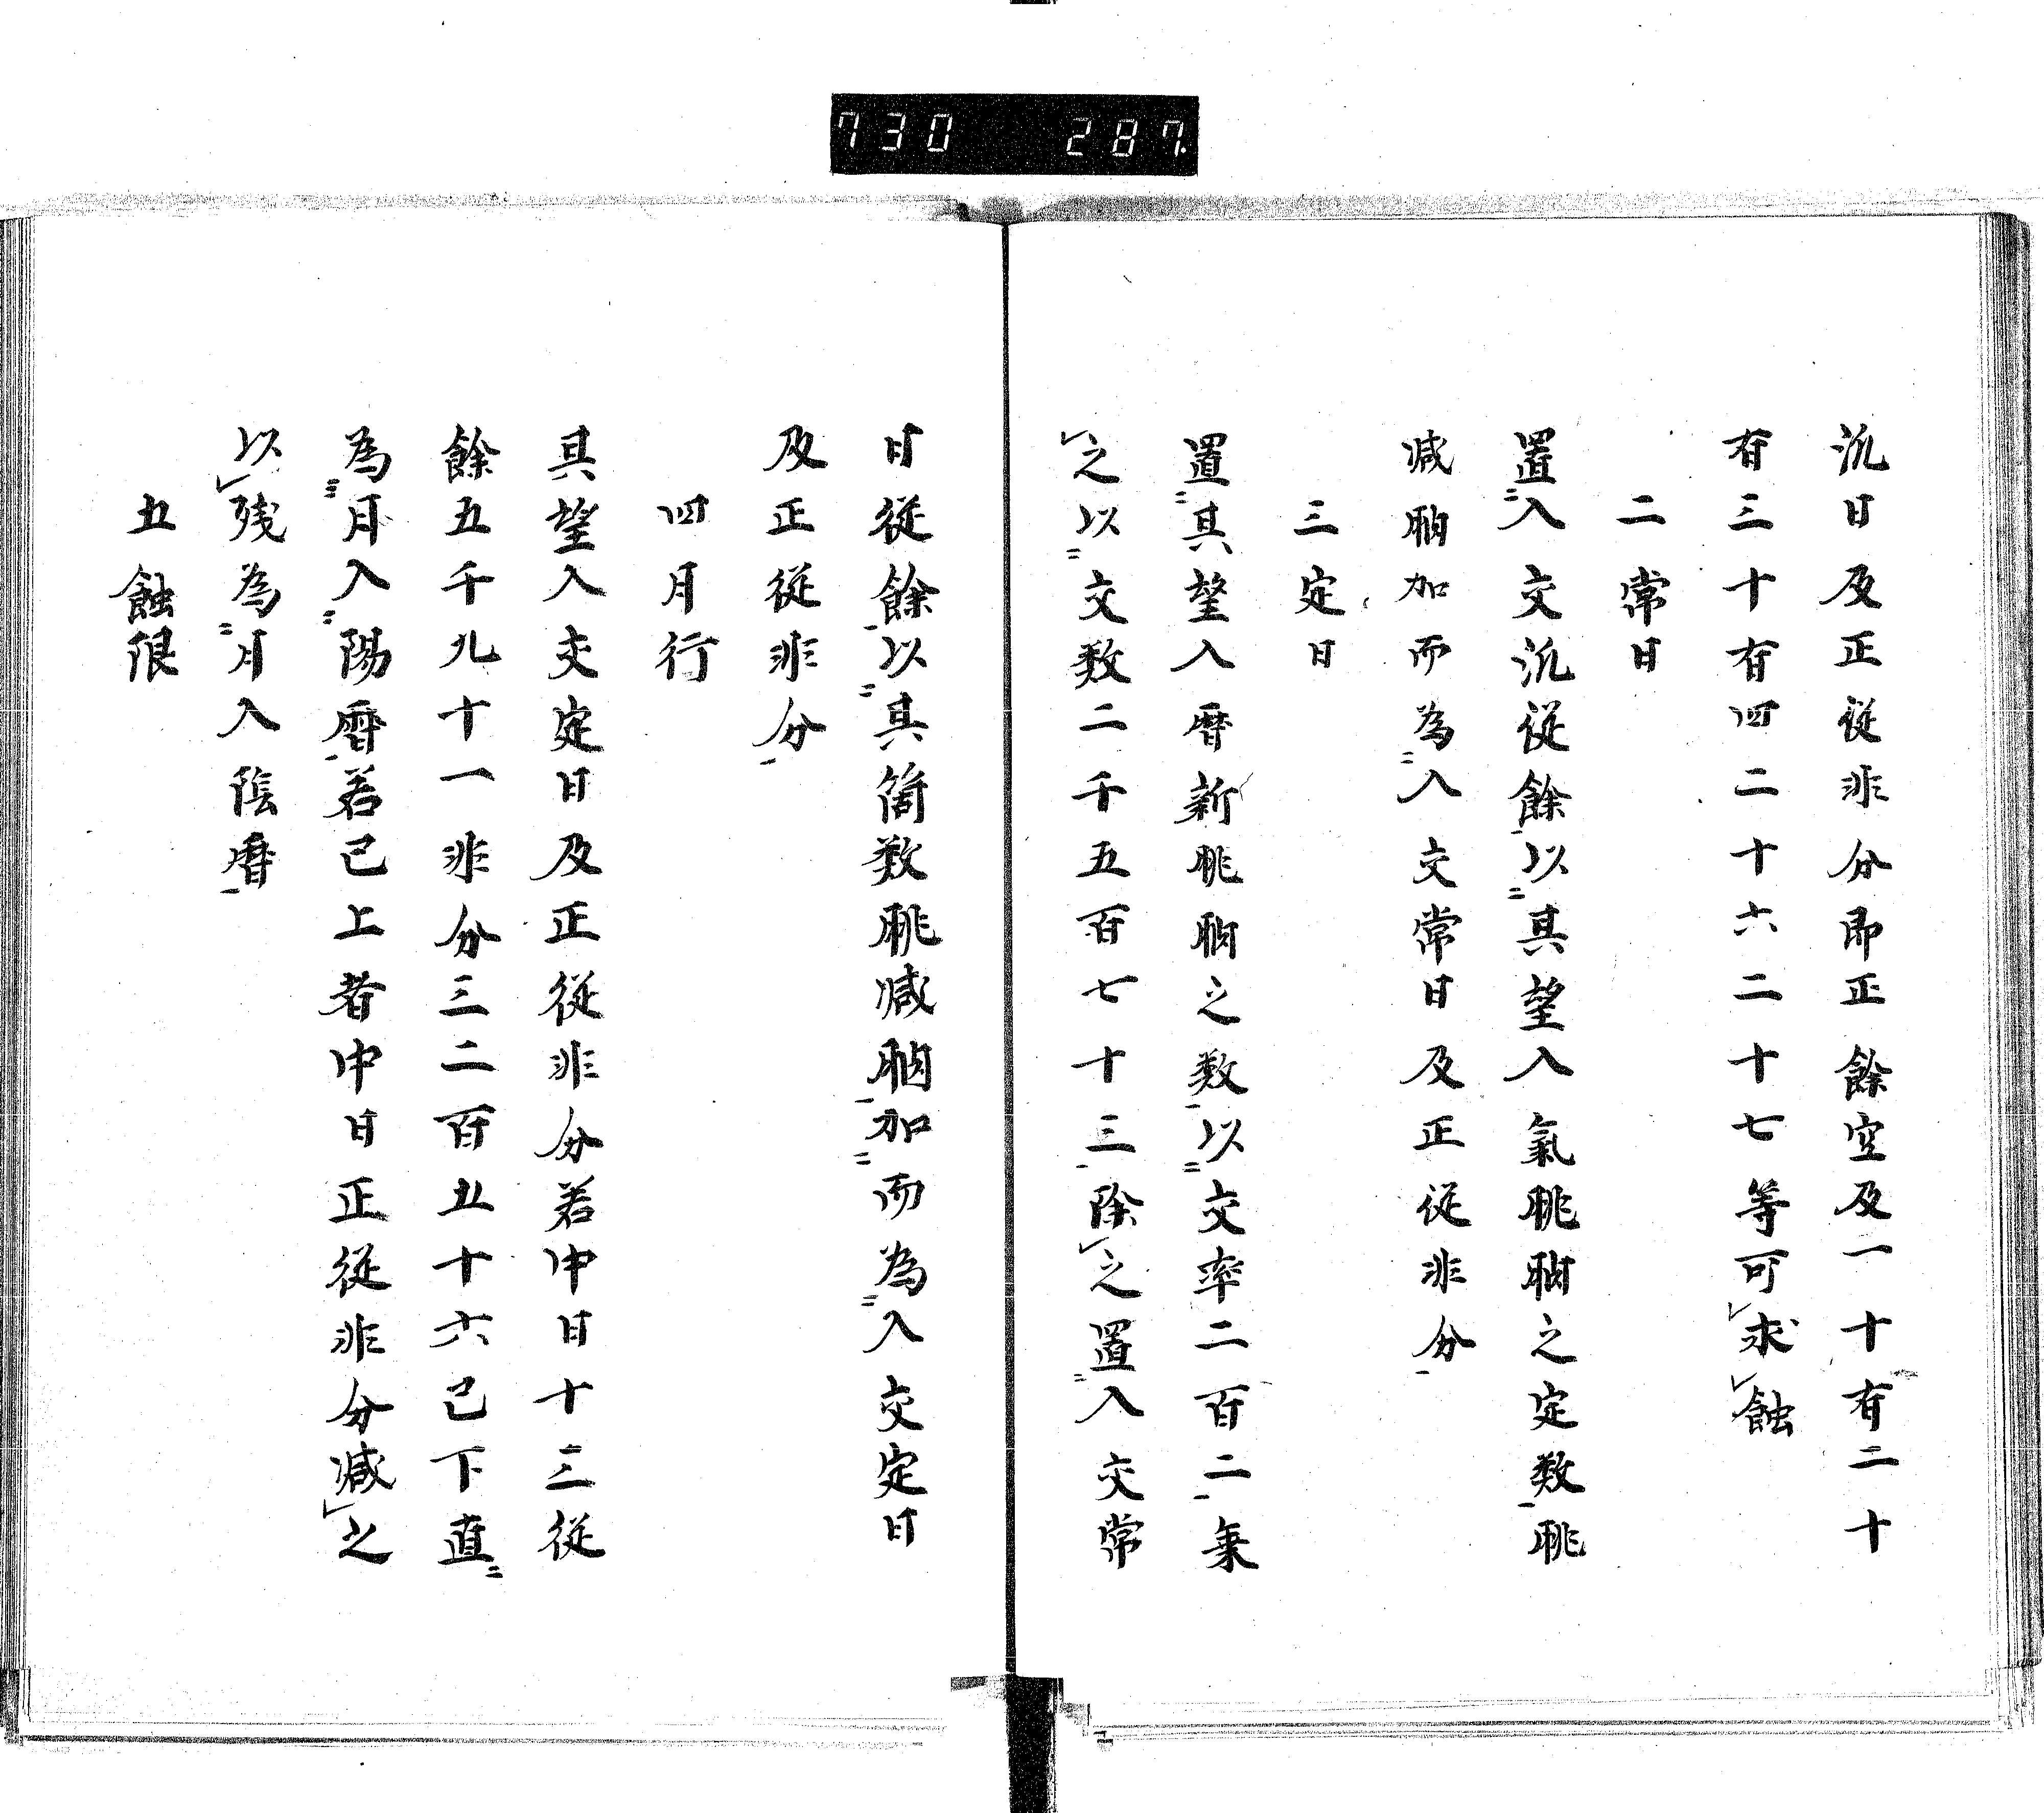 730 287
汎日及正従非分即正餘空及一十有二十
有三十有四二十六二十七等可求蝕
二常日
置入交汎従餘以其望入氣朓朒之定数朓
減朒加而為入交常日及正従非分
三定日
置其望入暦新朓朒之数以交率二百二乗
之以交数二千五百七十三除之置入交常
日従餘以其箇数朓減朒加而為入交定日
及正従非分
四月行
其望入交定日及正従非分若中日十三従
餘五千九十一非分三二百五十六已下直
為月入陽暦若已上者中日正従非分減之
以残為月入陰暦
五蝕限